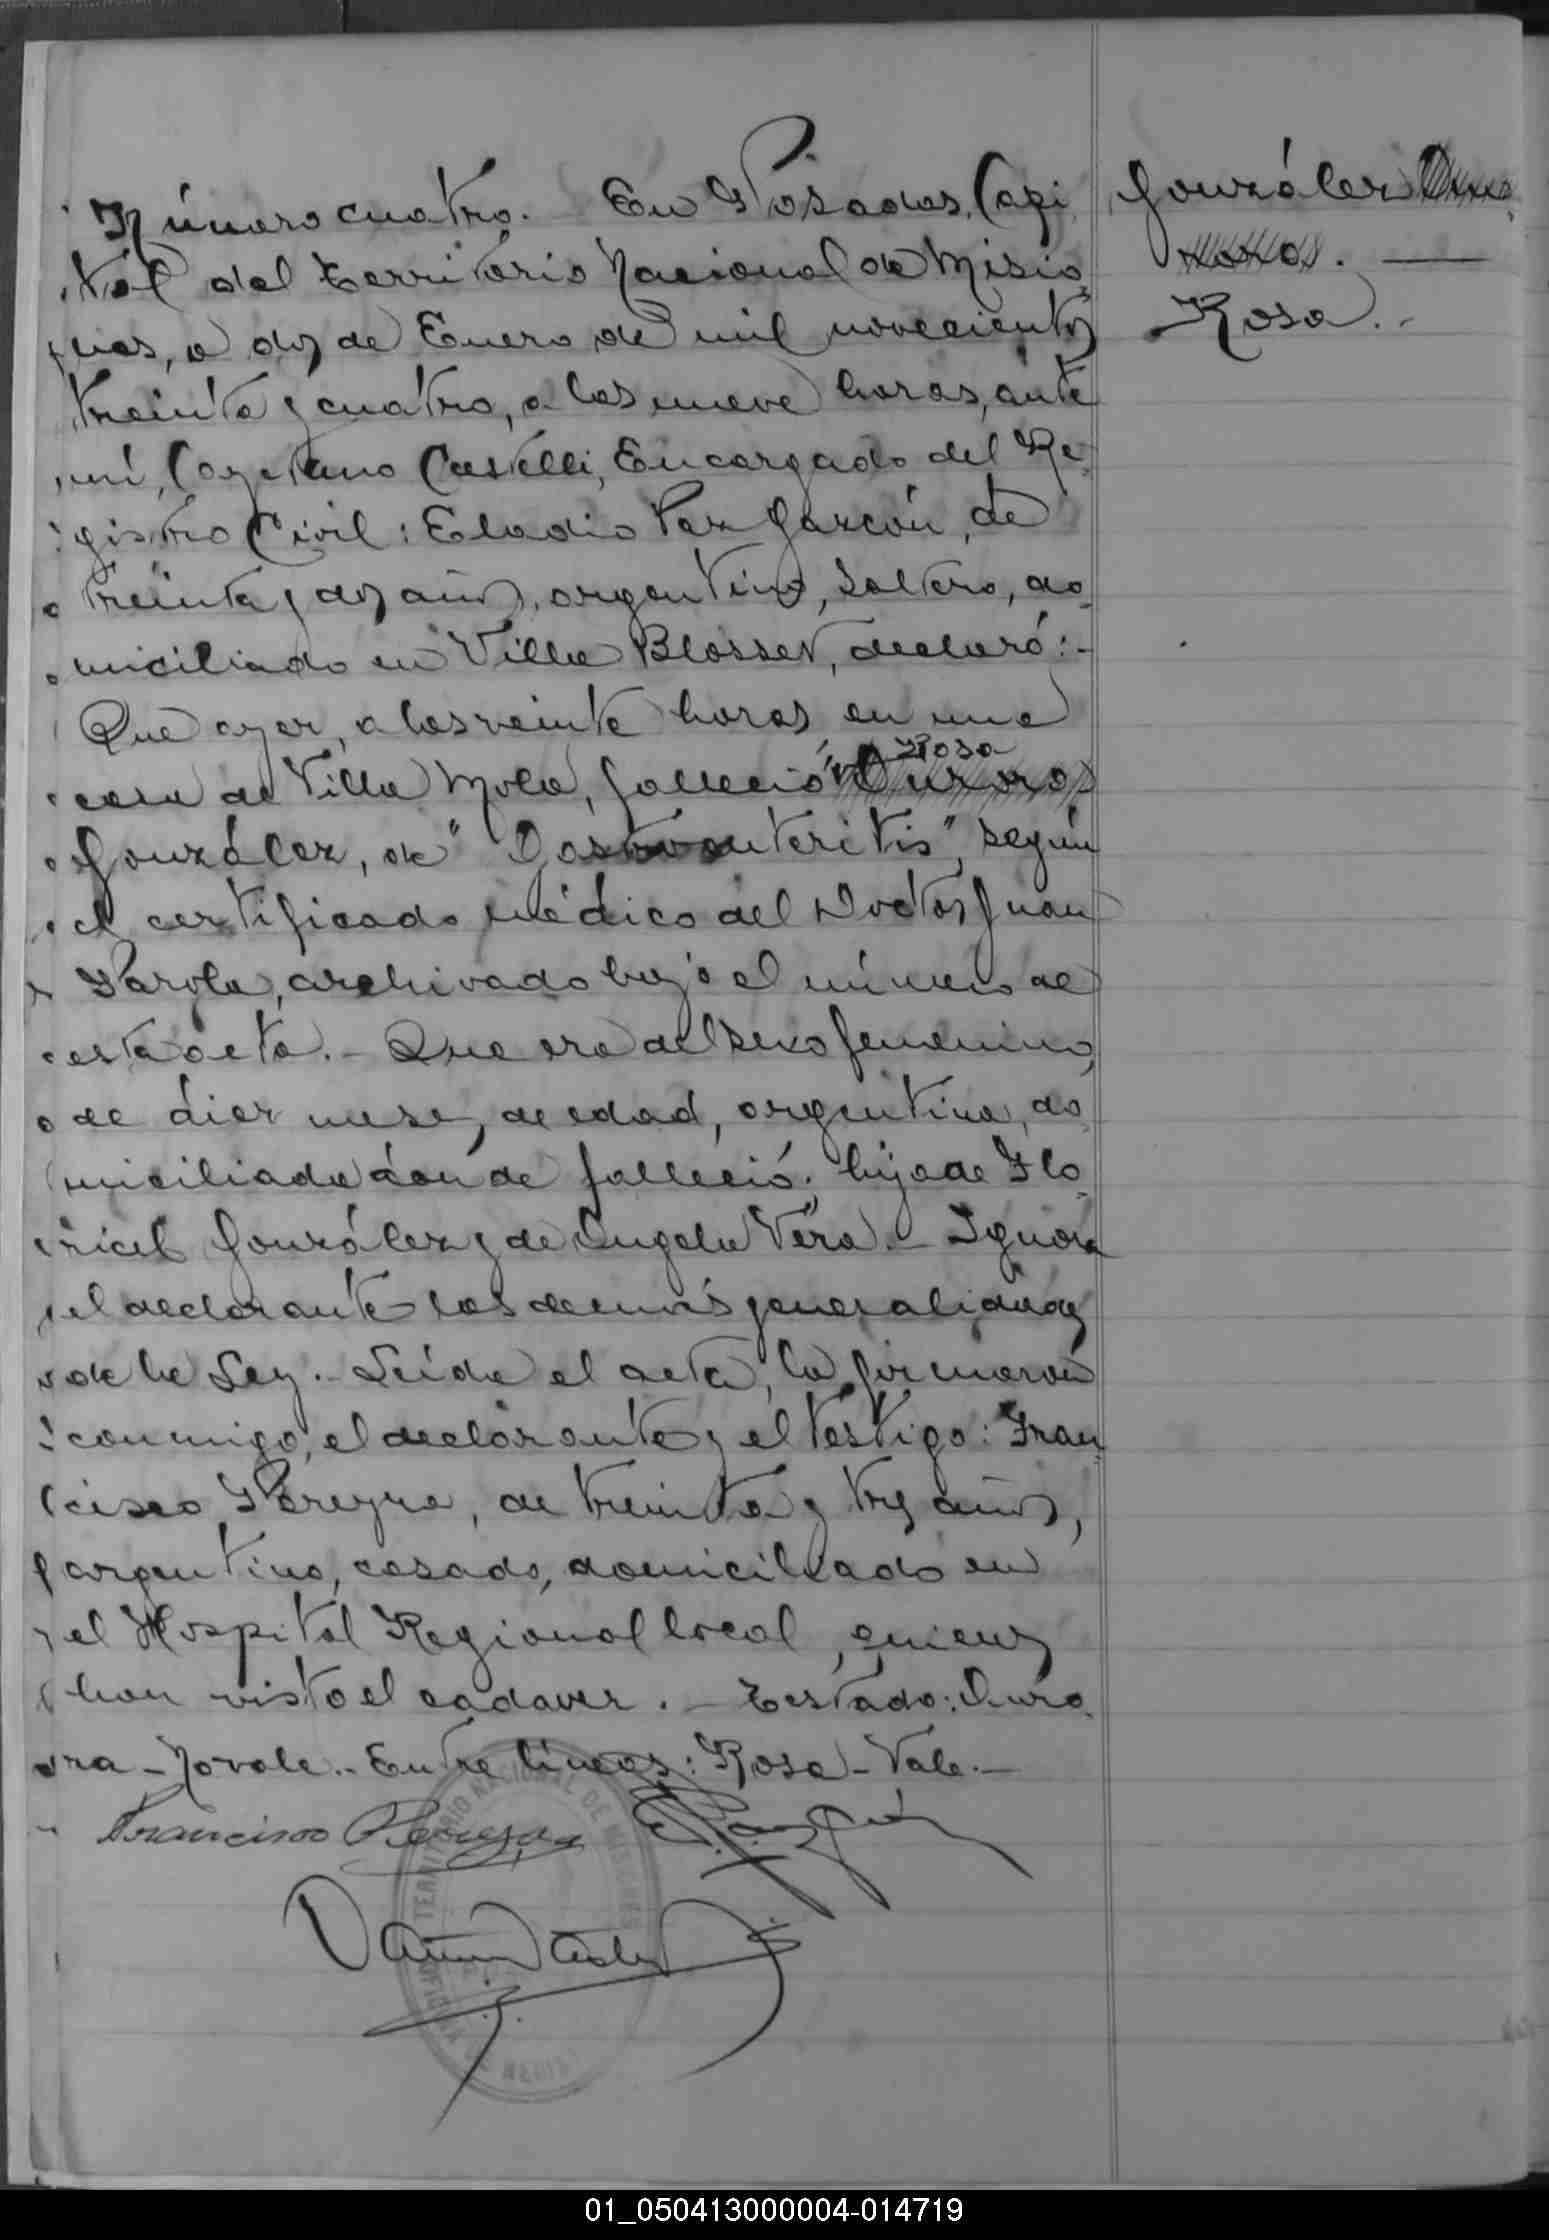 Número cuatro. En Posadas, Capi
tal del Territorio Nacional de Misio
nes, a dos de Enero de mil novecientos
treinta y cuatro, a las nueve horas, ante
mí, Cayetano Castelli, Encargado del Re
gistro Civil: Eladio Paz Garzón, de
treinta y dos años, argentino, soltero, do
miciliado en Villa Blosset, declaró:-
Que ayer, a las veinte horas en una
Rosa
casa de Villa Mola, falleció Aurora
González, de "Gastroenteritis", según
el certificado médico del Doctor Juan
Parola, archivado bajo el número de
esta acta.- Que era del sexo femenino,
de diez meses de edad, argentina, do
miciliada donde falleció; hija de Flo
ricel González y de Angela Vera.- Ignora
el declarante las demás generalidades
de la Ley.- Leída el acta, la firmaron
conmigo, el declarante y el testigo: Fran
cisco Pereyra, de treinta y tres años,
argentino, casado, domiciliado en
el Hospital Regional local, quienes
han visto el cadaver.- Testado: Auro
ra - No vale.- Entre líneas: Rosa - Vale.-
Francisco Pereyra
González
Rosa.-
TERRITORIO NACIONAL DE MISIONES
01_050413000004-014719